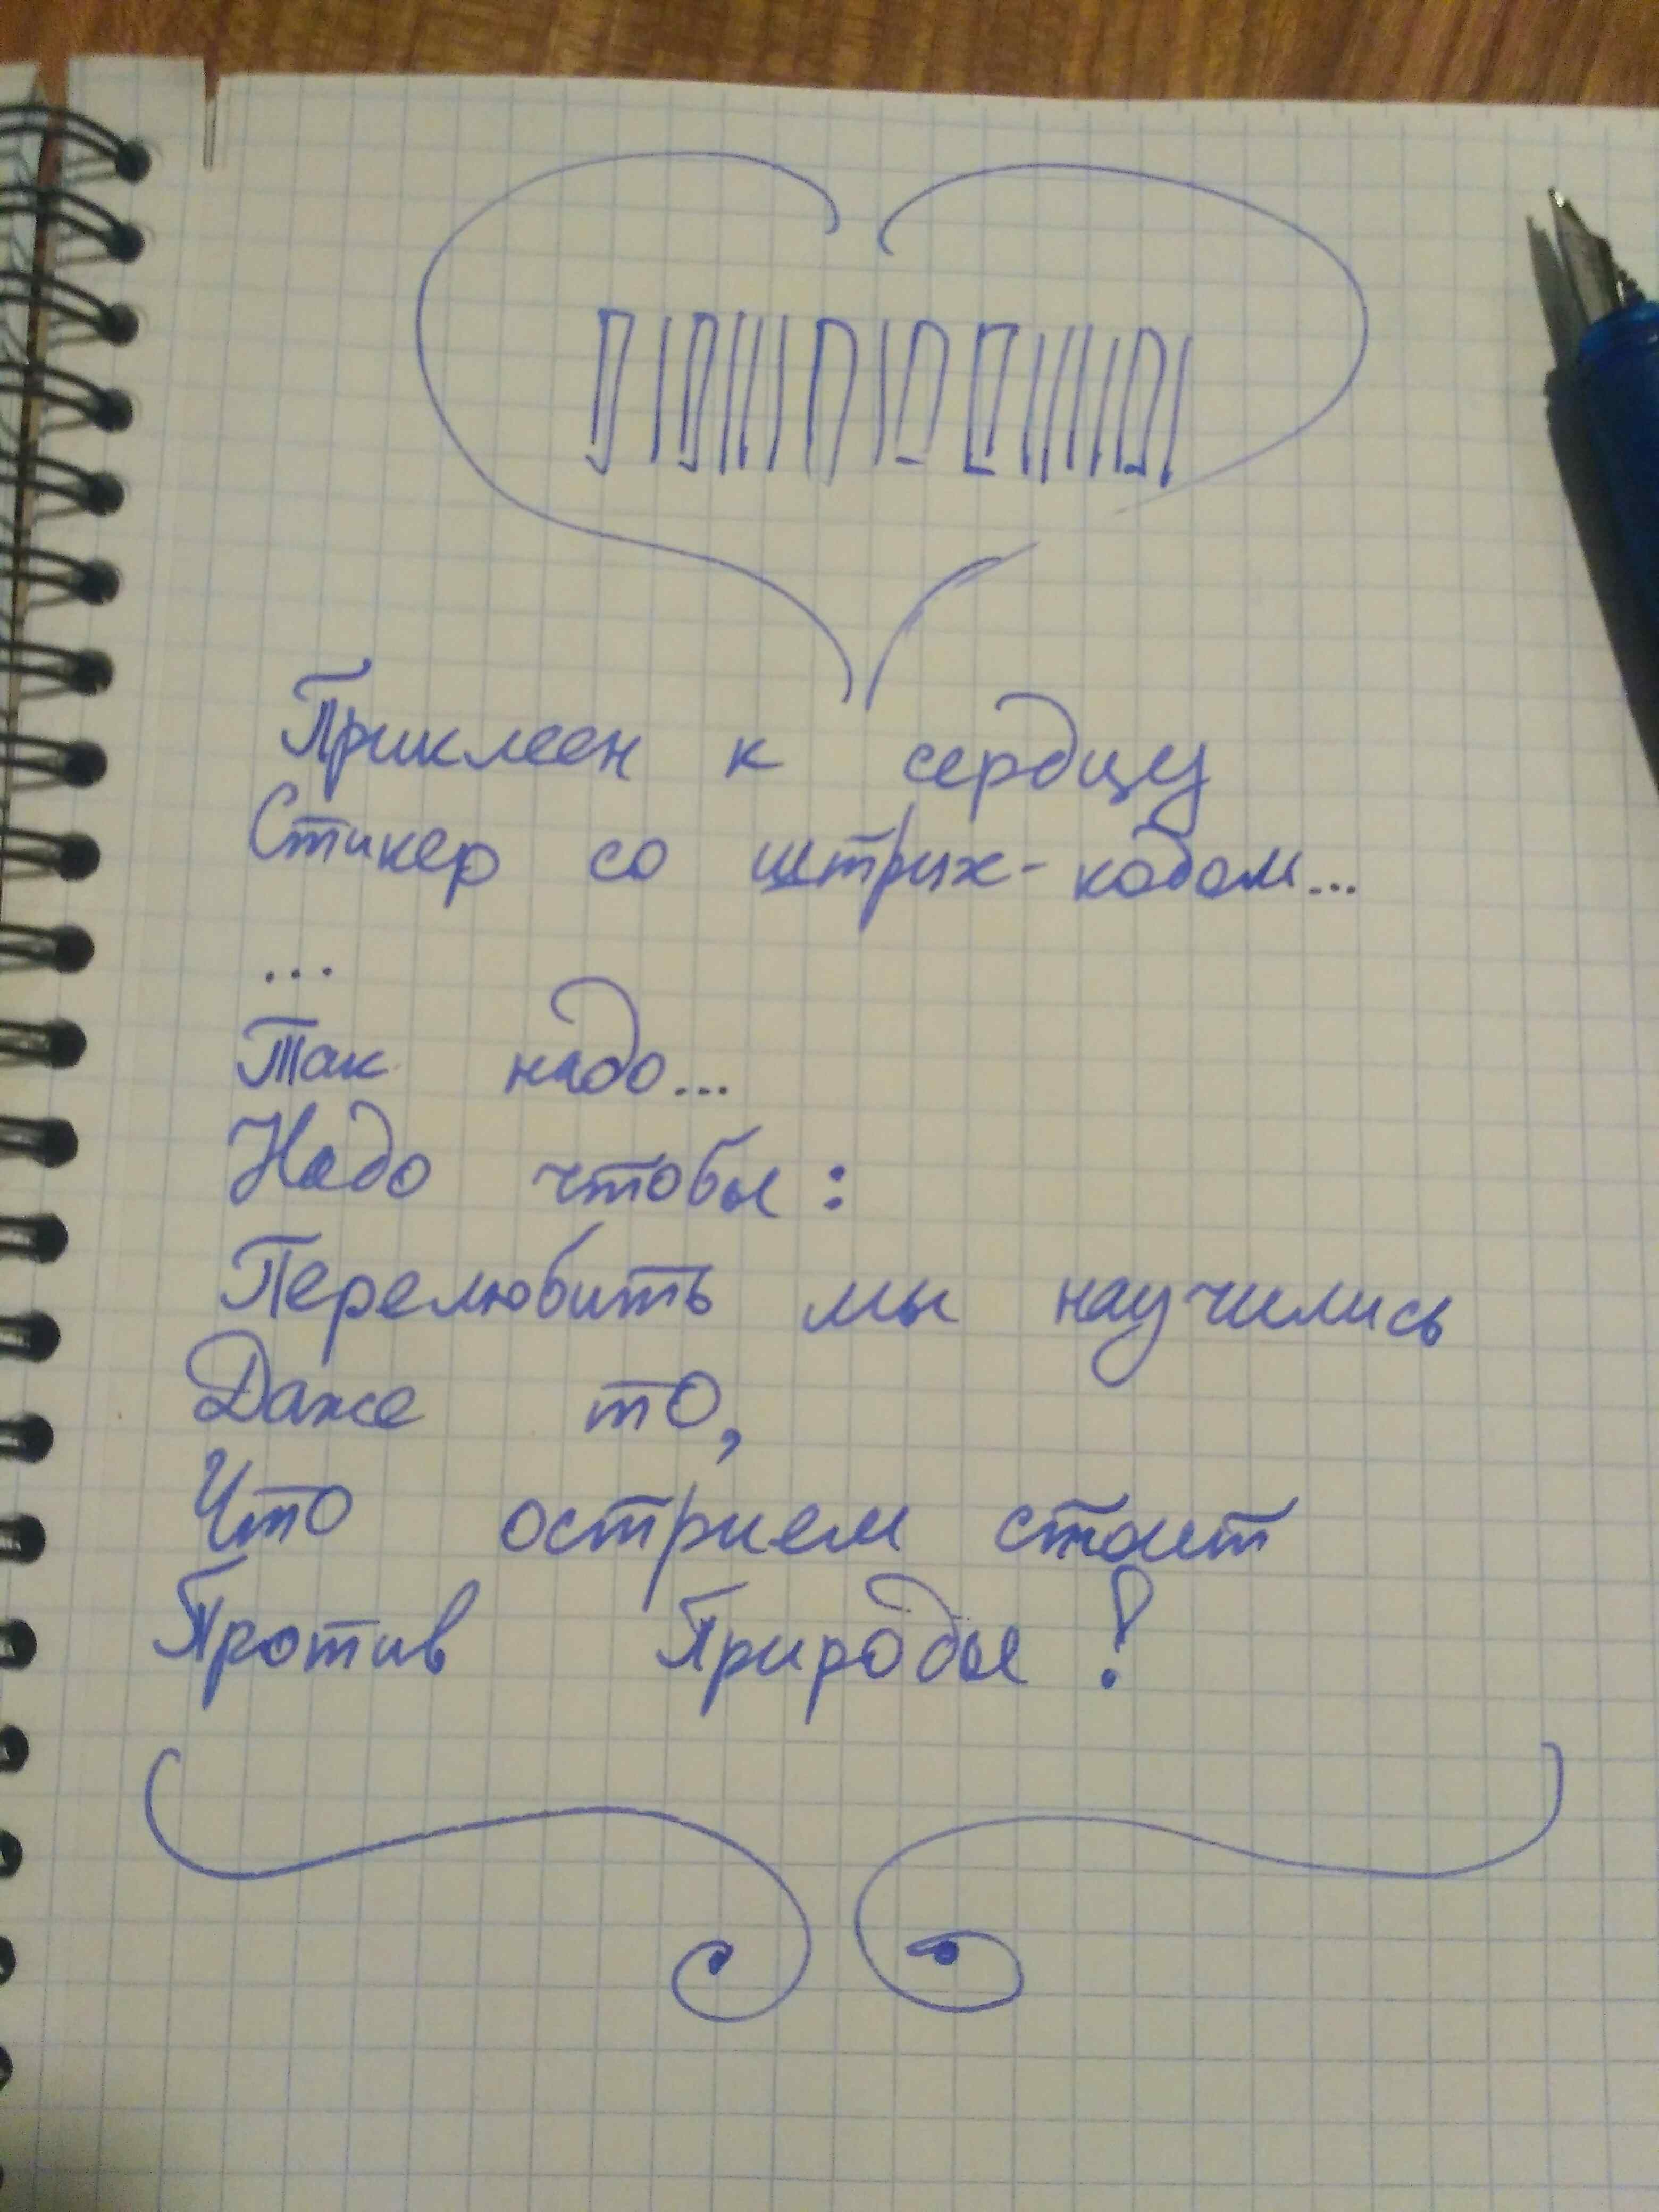 Приклеен к сердцу
Стикер со штрих-кодом...
...
Так надо...
Надо чтобы:
Перелюбить мы научились
Даже то,
Что острием стоит
Против Природы!